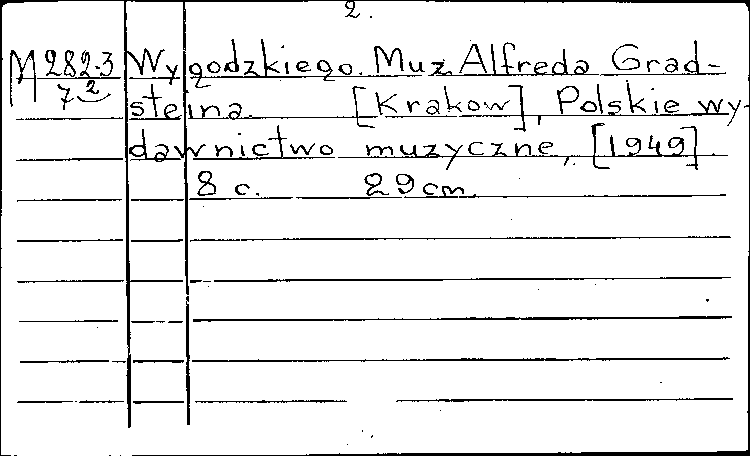 2.
M 282-3 Wygodzkiego. Muz. Alfreda Grad-
7 2 steina. [Krakow], Polskie wy-
dawnictwo muzyczne, [1949].
8 c. 29 cm.